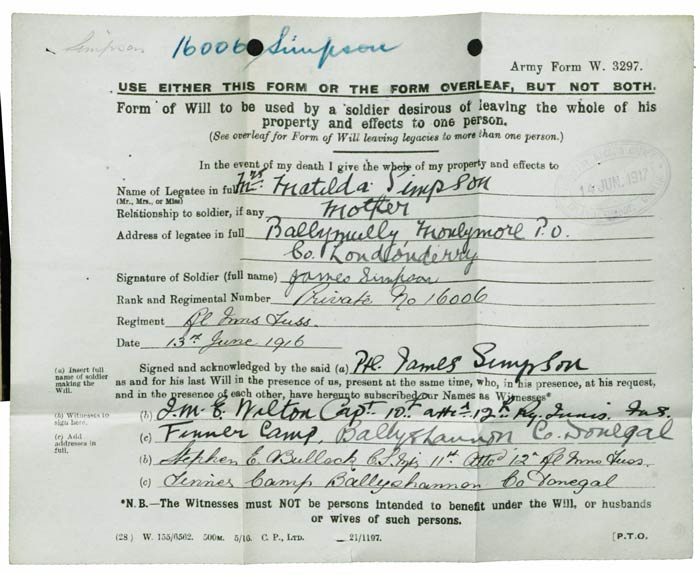 Simpson
16006 Simpson
Army Form W. 3297.
USE EITHER THIS FORM OR THE FORM OVERLEAF, BUT NOT BOTH.
Form of Will to be used by a soldier desirous of leaving the whole of his
property and effects to one person.
(See overleaf for Form of Will leaving legacies to more than one person.)
In the event of my death I give the whole of my property and effects to
Name of Legatee in full Mrs Matilda Simpson
(Mr., Mrs., or Miss)
Relationship to soldier, if any Mother
Address of legatee in full Ballymully, Moneymore P.O.
Co. Londonderry
14 JUN. 1917
Signature of Soldier (full name) James Simpson
Rank and Regimental Number Private No 16006
Regiment Rl Inns Fuss.
Date 13th June 1916
Signed and acknowledged by the said (a) Pte. James Simpson
as and for his last Will in the presence of us, present at the same time, who, in his presence, at his request,
and in the presence of each other, have hereunto subscribed our Names as Witnesses*
(a) Insert full
name of soldier
making the
Will.
(b) Witnesses to
sign here.
(c) Add
addresses in
full.
(b) J.M.E. Wilton Capt 10th att'd 12th Ry. Innis. Fus.
(c) Finner Camp, Ballyshannon Co. Donegal
(b) Stephen E. Bullock 11th Attd 12th Rl Inns Fuss.
(c) Finner Camp Ballyshannon Co Donegal
*N.B.—The Witnesses must NOT be persons intended to benefit under the Will, or husbands
or wives of such persons.
(28) W. 155/6502. 500M. 5/16. C. P., Ltd. 21/1107. [P.T.O.